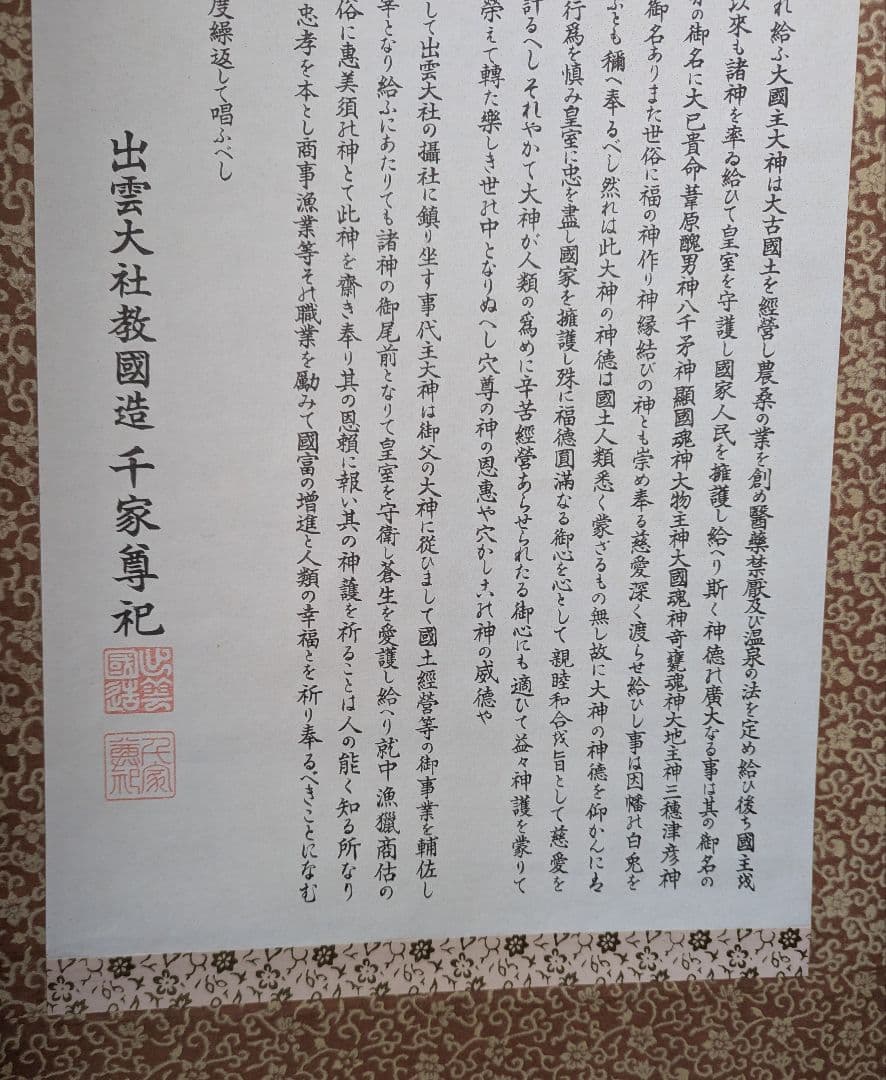 れ給ふ大國主大神は大古國土を經營し農桑の業を創め醫藥禁厭及び温泉の法を定め給ひ後ち國主を
以來も諸神を率ゐ給ひて皇室を守護し國家人民を擁護し給へり斯く神德の廣大なる事は其の御名の
の御名に大己貴命葦原醜男神八千矛神顯國魂神大物主神大國魂神奇甕魂神大地主神三穗津彦神
御名ありまた世俗に福の神作り神縁結びの神とも崇め奉る慈愛深く渡らせ給ひし事は因幡の白兎を
ふとも稱へ奉るべし然れは此大神の神德は國土人類悉く蒙ざるもの無し故に大神の神德を仰かんには
行爲を慎み皇室に忠を盡し國家を擁護し殊に福德圓滿なる御心を心として親睦和合を旨として慈愛を
計るへしそれやかて大神が人類の爲めに辛苦經營あらせられたる御心にも適ひて益々神護を蒙りて
榮えて轉た樂しき世の中となりぬへし穴尊の神の恩惠や穴かしこの神の威德や
して出雲大社の攝社に鎭り坐す事代主大神は御父の大神に從ひまして國土經營等の御事業を輔佐し
宰となり給ふにあたりても諸神の御尾前となりて皇室を守衛し蒼生を愛護し給へり就中漁獵商估の
俗に惠美須の神とて此神を齋き奉り其の恩賴に報い其の神護を祈ることは人の能く知る所なり
忠孝を本とし商事漁業等その職業を勵みて國富の增進と人類の幸福とを祈り奉るへきことになむ
度繰返して唱ふべし
出雲大社教國造 千家尊祀
出雲國造
千家尊祀